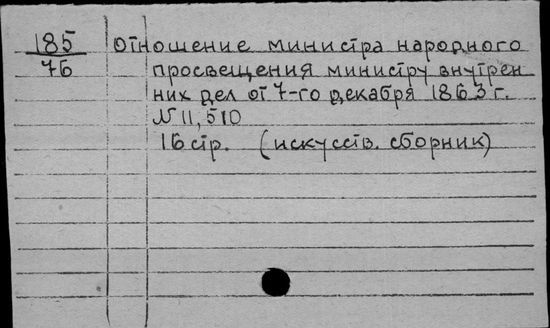 185
76
Отношение министра народного
просвещения министру внутрен
них дел от 7-го декабря 1863 г.
№ 11,510
16 стр. (искусств. сборник)